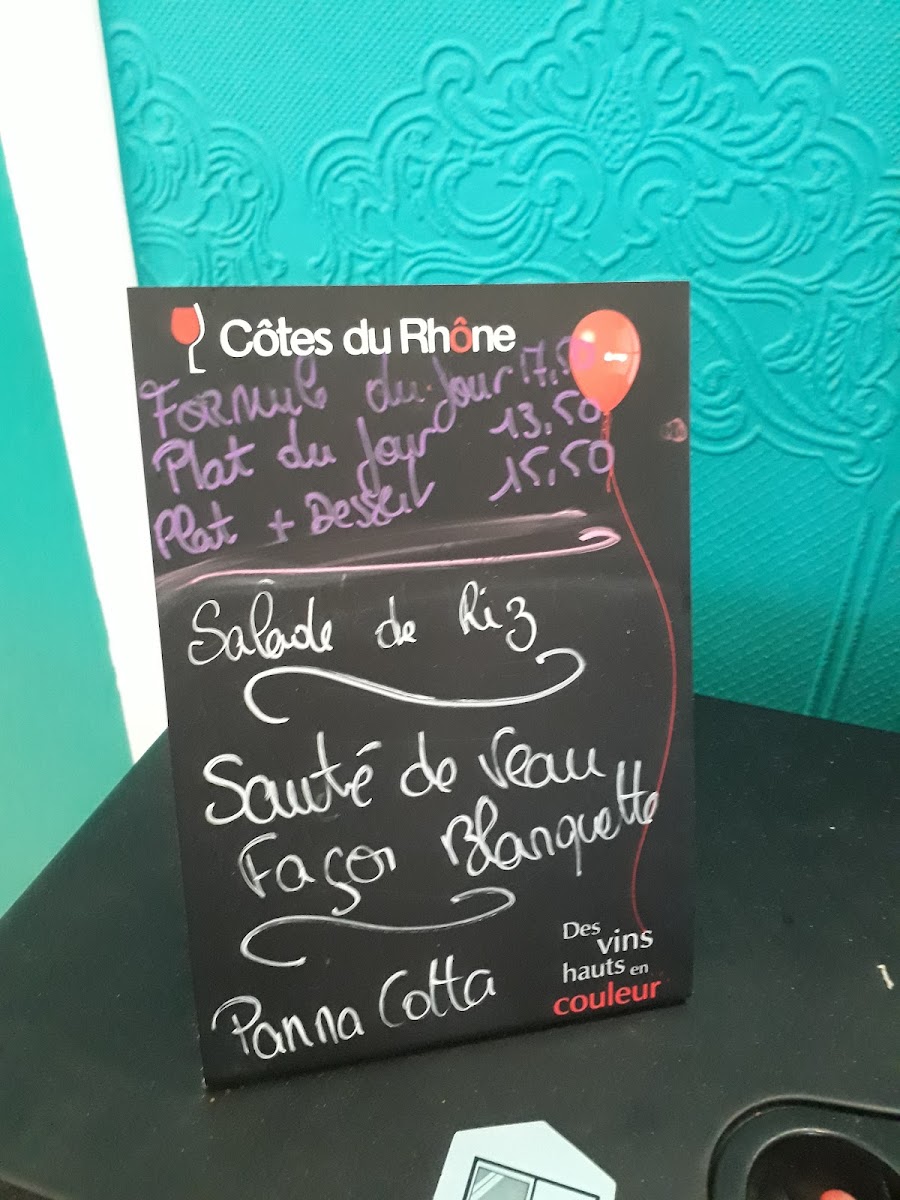 Côtes du Rhône
Formule du Jour 17,50
Plat du Jour 13,50
Plat + Dessert 15,50
Salade de Riz
Sauté de Veau
Façon Blanquette
Panna Cotta
Des
vins
hauts en
couleur